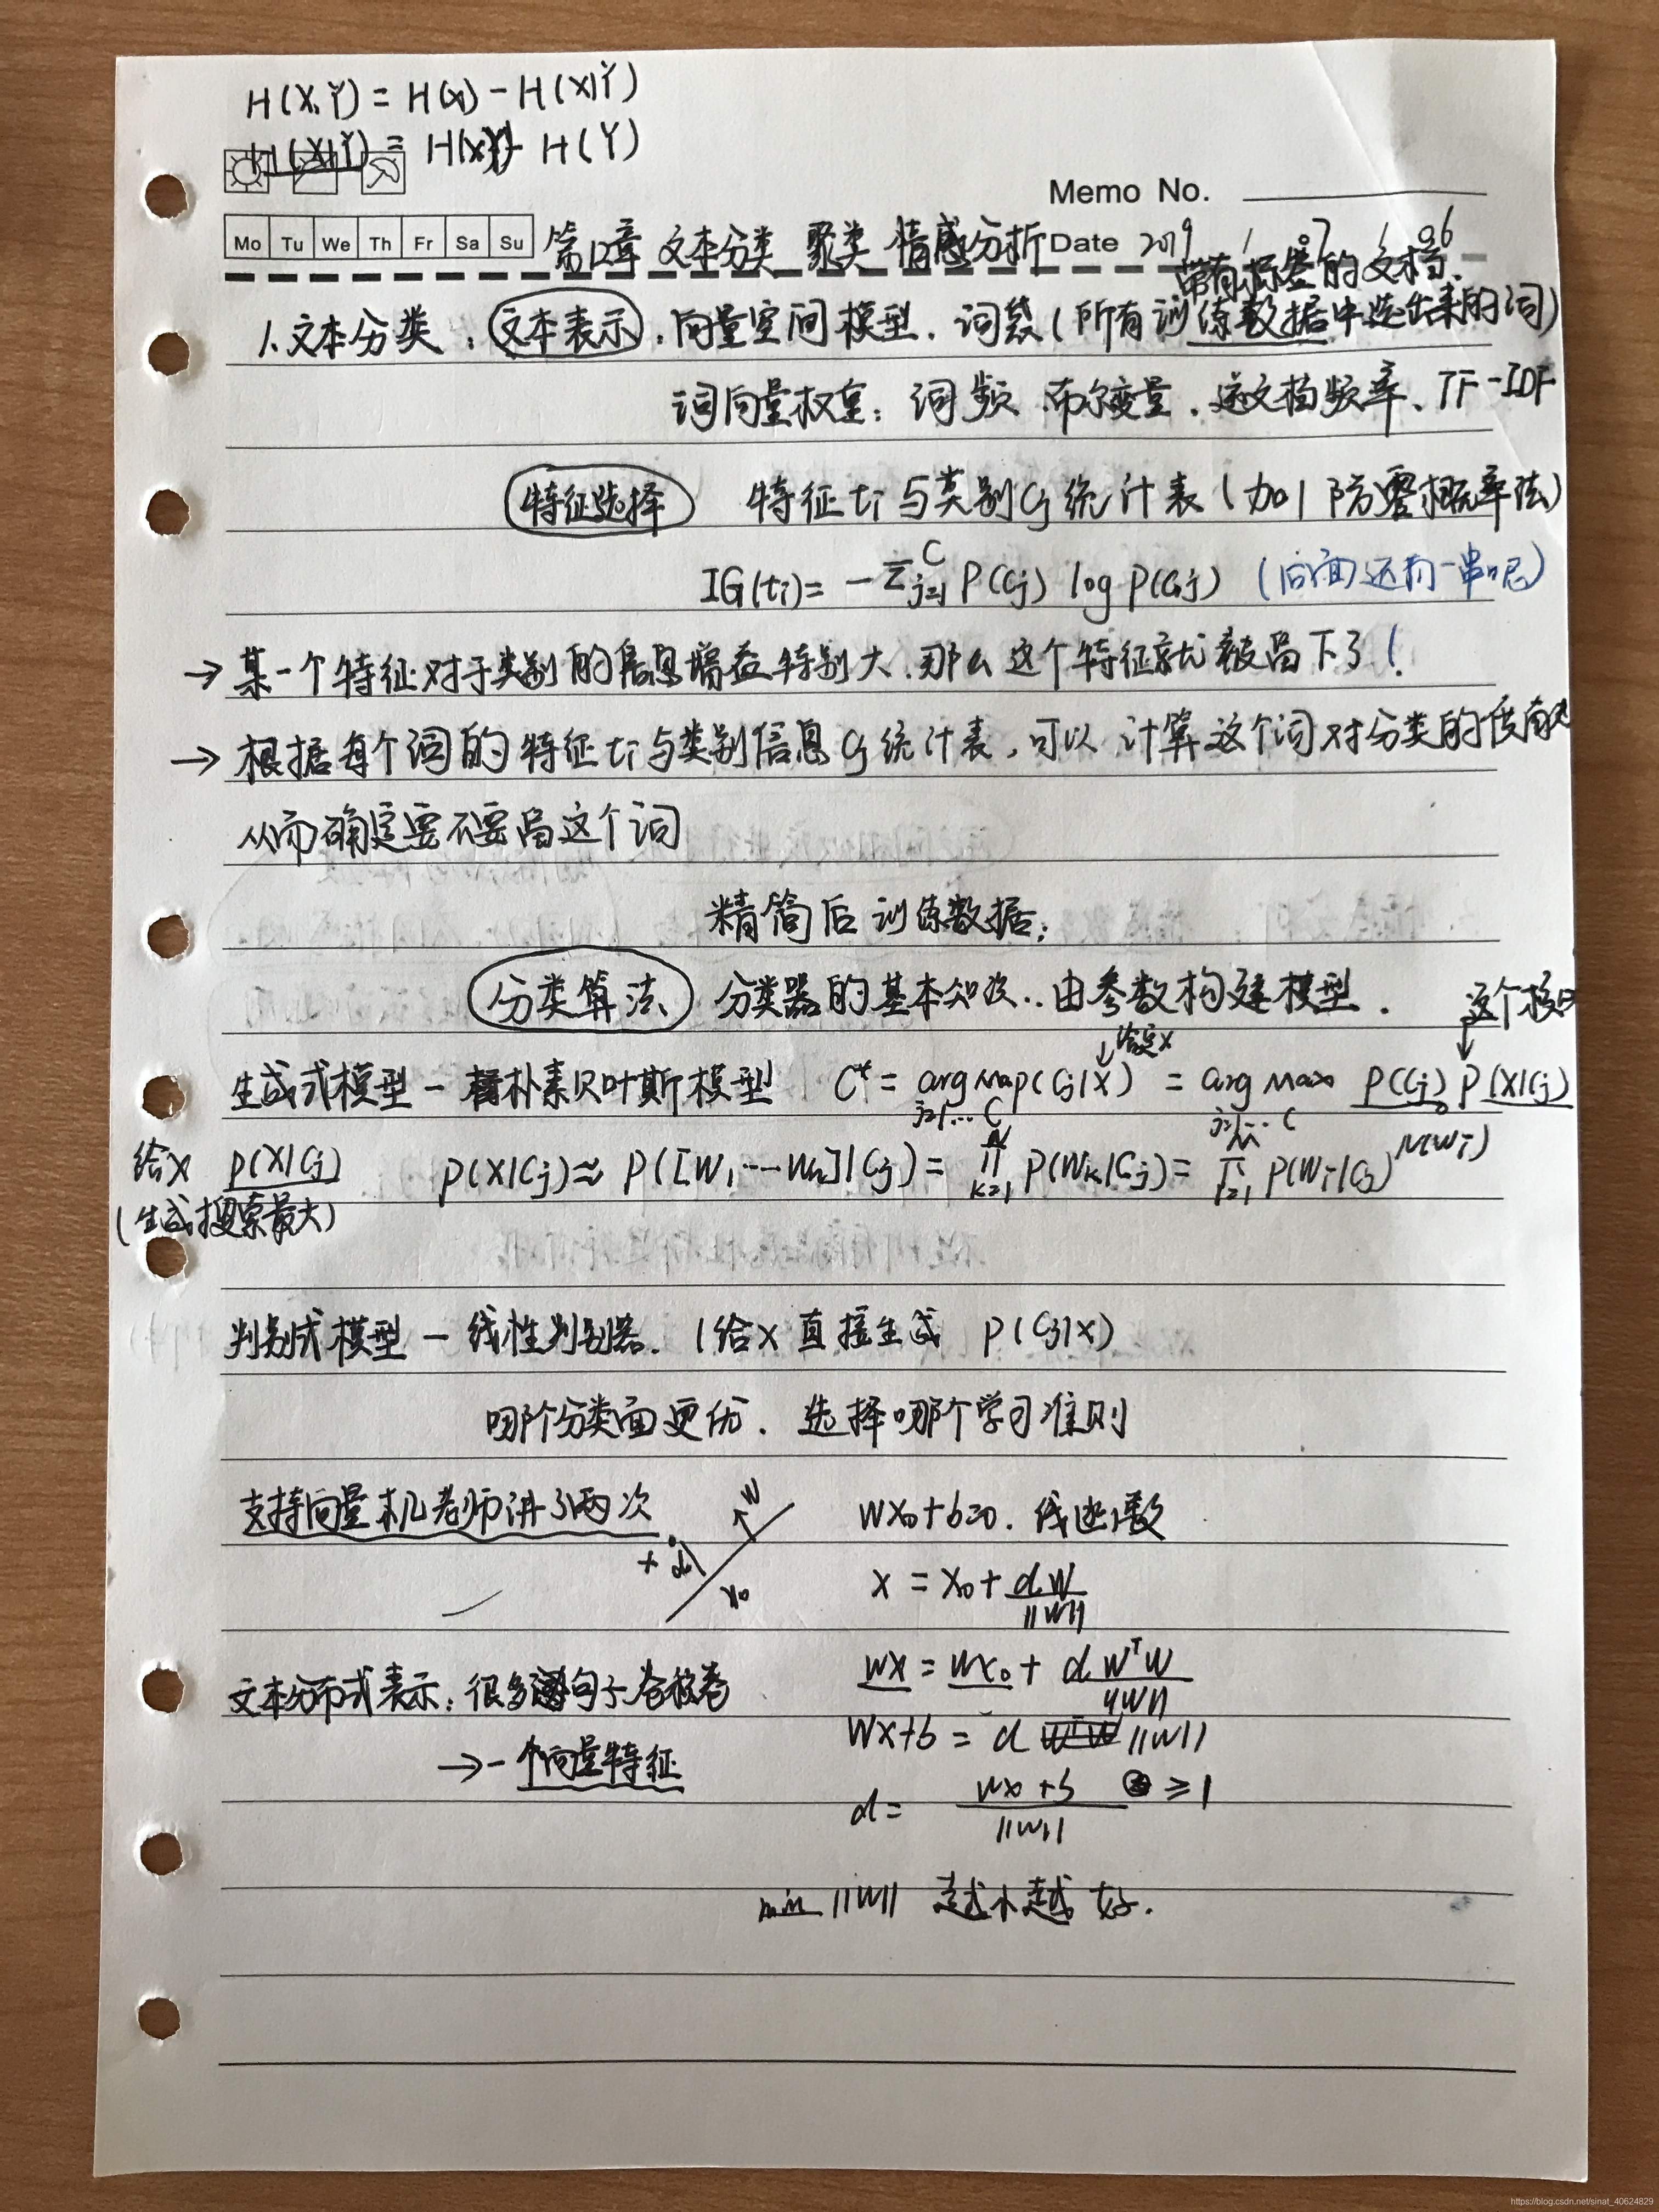 H(X,Y) = H(x) - H(X|Y)
H(X|Y) = H(XY) - H(Y)
Memo No.
Mo Tu We Th Fr Sa Su 第12章 文本分类 聚类 情感分析 Date 2019 / 07 / 06
带有标签的文档.
1.文本分类: 文本表示: 向量空间模型. 词袋(所有训练数据中选出来的词)
词向量权重: 词频 布尔变量. 逆文档频率、TF-IDF
特征选择 特征ti与类别Cj统计表(加1防零概率法)
IG(ti)= -Σ_{j=1}^{C} P(Cj) log P(Cj) (后面还有一串呢)
→ 某一个特征对于类别的信息增益特别大.那么这个特征就被留下了!
→ 根据每个词的特征ti与类别信息Cj统计表,可以计算这个词对分类的
从而确定要不要留这个词
精简后训练数据:
分类算法 分类器的基本知识..由参数构建模型. 这个
↓给定x ↓
生成式模型 - 朴素贝叶斯模型 C* = arg max_{j=1,...C} p(Cj|X) = arg max_{j=1...C} P(Cj) P(X|Cj)
给X p(X|Cj) p(X|Cj) ≈ P([W1 ... Wn]|Cj) = Π_{k=1}^{N} P(Wk|Cj) = Π_{i=1}^{M} P(Wi|Cj)^{N(Wi)}
(生成搜索最大)
判别式模型 - 线性判别器. (给X直接生成 P(Cj|X)
哪个分类面更优. 选择哪个学习准则
支持向量机老师讲了两次 x d x0 W wx0+b=0.
x = x0 + dW/||W||
wx = wx0 + d W^T W/||W||
文本分布式表示: 很多句子卷积卷
Wx+b = d ||W||
→一个向量特征
d = wx+b/||W|| ≥1
min ||W|| 越小越好.
https://blog.csdn.net/sinat_40624829